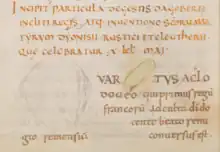 INCIPIT PARTICULA DE GESTIS DAGOBERTI
INCLITI REGIS, ATQ; INVENTIONE SCORUM MAR
TYRUM DYONISII RUSTICI ET ELEUTHERII
QUE CELEBRATUR X KL MAI
VAR TUS A CLO
DOVEO qui primus regũ
francorũ
cente beato remi
gio remensi conversus est.